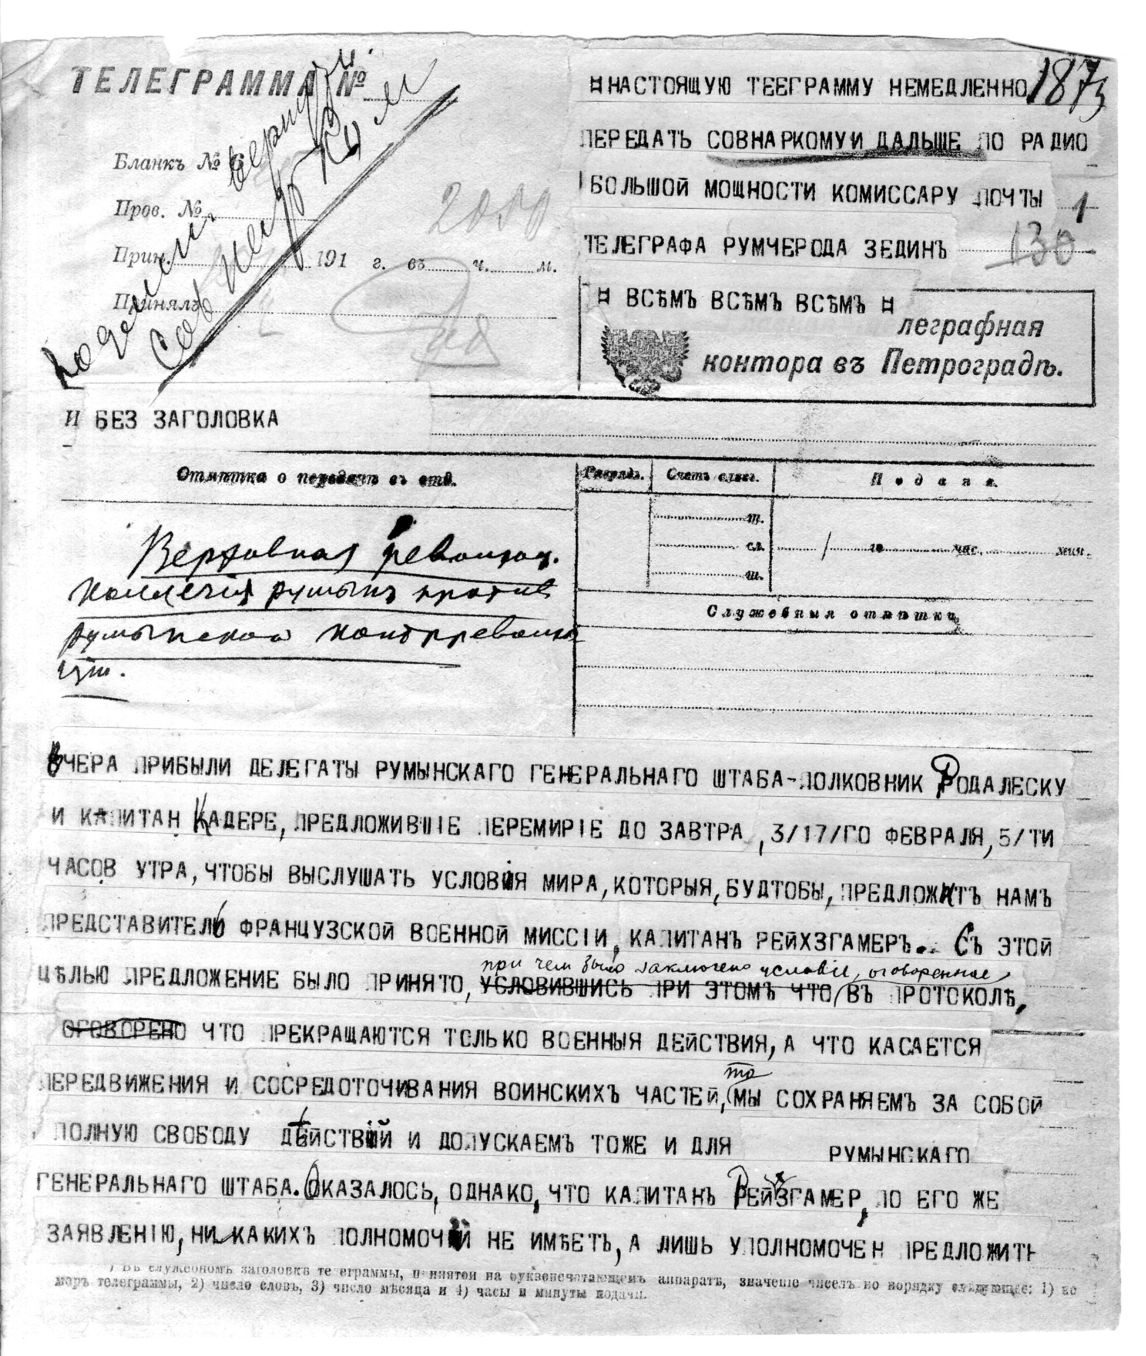 ТЕЛЕГРАММА №
Бланкъ № 6
Пров. №
Прин. 191 г. въ ч. м.
Принялъ
2010
¤НАСТОЯЩУЮ ТЕЕГРАММУ НЕМЕДЛЕННО
ПЕРЕДАТЬ СОВНАРКОМУИ ДАЛЬШЕ ПО РАДИО
БОЛЬШОЙ МОЩНОСТИ КОМИССАРУ ПОЧТЫ 1
ТЕЛЕГРАФА РУМЧЕРОДА ЗЕДИНЪ 130
¤ ВСѢМЪ ВСѢМЪ ВСѢМЪ ¤
леграфная
контора въ Петроградѣ.
И БЕЗ ЗАГОЛОВКА
Отмѣтка о передачѣ въ отд.
Разрядъ. Счетъ словъ. Подана.
т.
сл. / го час. мин.
ш.
Служебныя отмѣтки.
Верховная революц.
коллегія румынъ против
румынской контрреволю
ціи.
ВЧЕРА ПРИБЫЛИ ДЕЛЕГАТЫ РУМЫНСКАГО ГЕНЕРАЛЬНАГО ШТАБА-ПОЛКОВНИК РОДАЛЕСКУ
И КАПИТАН КАДЕРЕ, ПРЕДЛОЖИВШІЕ ПЕРЕМИРІЕ ДО ЗАВТРА, 3/17/ГО ФЕВРАЛЯ, 5/ТИ
ЧАСОВ УТРА, ЧТОБЫ ВЫСЛУШАТЬ УСЛОВІЯ МИРА, КОТОРЫЯ, БУДТОБЫ, ПРЕДЛОЖИТЪ НАМЪ
ПРЕДСТАВИТЕЛЬ ФРАНЦУЗСКОЙ ВОЕННОЙ МИССІИ, КАПИТАНЪ РЕЙХЗГАМЕРЪ.. СЪ ЭТОЙ
при чем было заключено условіе, оговоренное
ЦѢЛЬЮ ПРЕДЛОЖЕНИЕ БЫЛО ПРИНЯТО, УСЛОВИВШИСЬ ПРИ ЭТОМЪ ЧТО ВЪ ПРОТОКОЛѢ,
ОГОВОРЕНО ЧТО ПРЕКРАЩАЮТСЯ ТОЛЬКО ВОЕННЫЯ ДЕЙСТВИЯ, А ЧТО КАСАЕТСЯ
то
ПЕРЕДВИЖЕНИЯ И СОСРЕДОТОЧИВАНИЯ ВОИНСКИХЪ ЧАСТЕЙ, МЫ СОХРАНЯЕМЪ ЗА СОБОЙ
ПОЛНУЮ СВОБОДУ ДѢЙСТВІЙ И ДОПУСКАЕМЪ ТОЖЕ И ДЛЯ РУМЫНСКАГО
ГЕНЕРАЛЬНАГО ШТАБА. ОКАЗАЛОСЬ, ОДНАКО, ЧТО КАПИТАНЪ РЕЙХЗГАМЕР, ПО ЕГО ЖЕ
ЗАЯВЛЕНІЮ, НИКАКИХЪ ПОЛНОМОЧІЙ НЕ ИМѢЕТЬ, А ЛИШЬ УПОЛНОМОЧЕН ПРЕДЛОЖИТЬ
) Въ служебномъ заголовкѣ телеграммы, принятой на буквопечатающемъ аппаратѣ, значеніе чиселъ по порядку слѣдующее: 1) но
меръ телеграммы, 2) число словъ, 3) число мѣсяца и 4) часы и минуты подачи.